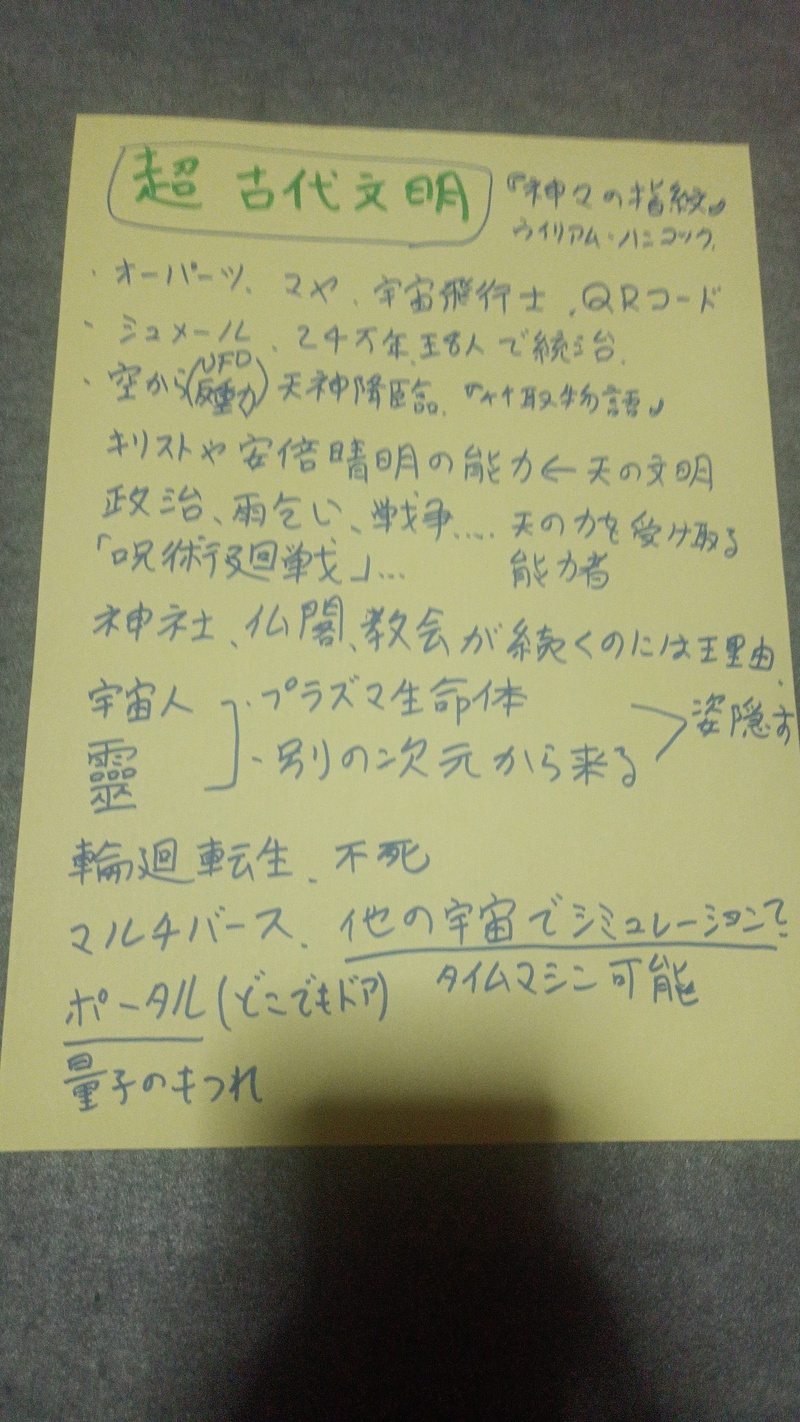 超 古代文明
『神々の指紋』
ウイリアム・ハンコック
・オーパーツ、マヤ、宇宙飛行士、QRコード
・シュメール、24万年、王8人で統治、
・空から(UFO 反重力)天神降臨、『竹取物語』
キリストや安倍晴明の能力←天の文明
政治、雨乞い、戦争....天の力を受け取る
「呪術廻戦」... 能力者
神社、仏閣、教会が続くのには理由、
宇宙人 ・プラズマ生命体
靈 ・別の次元から来る 姿隠す
輪廻転生、不死
マルチバース、他の宇宙でシミュレーションで
ポータル(どこでもドア) タイムマシン可能
量子のもつれ